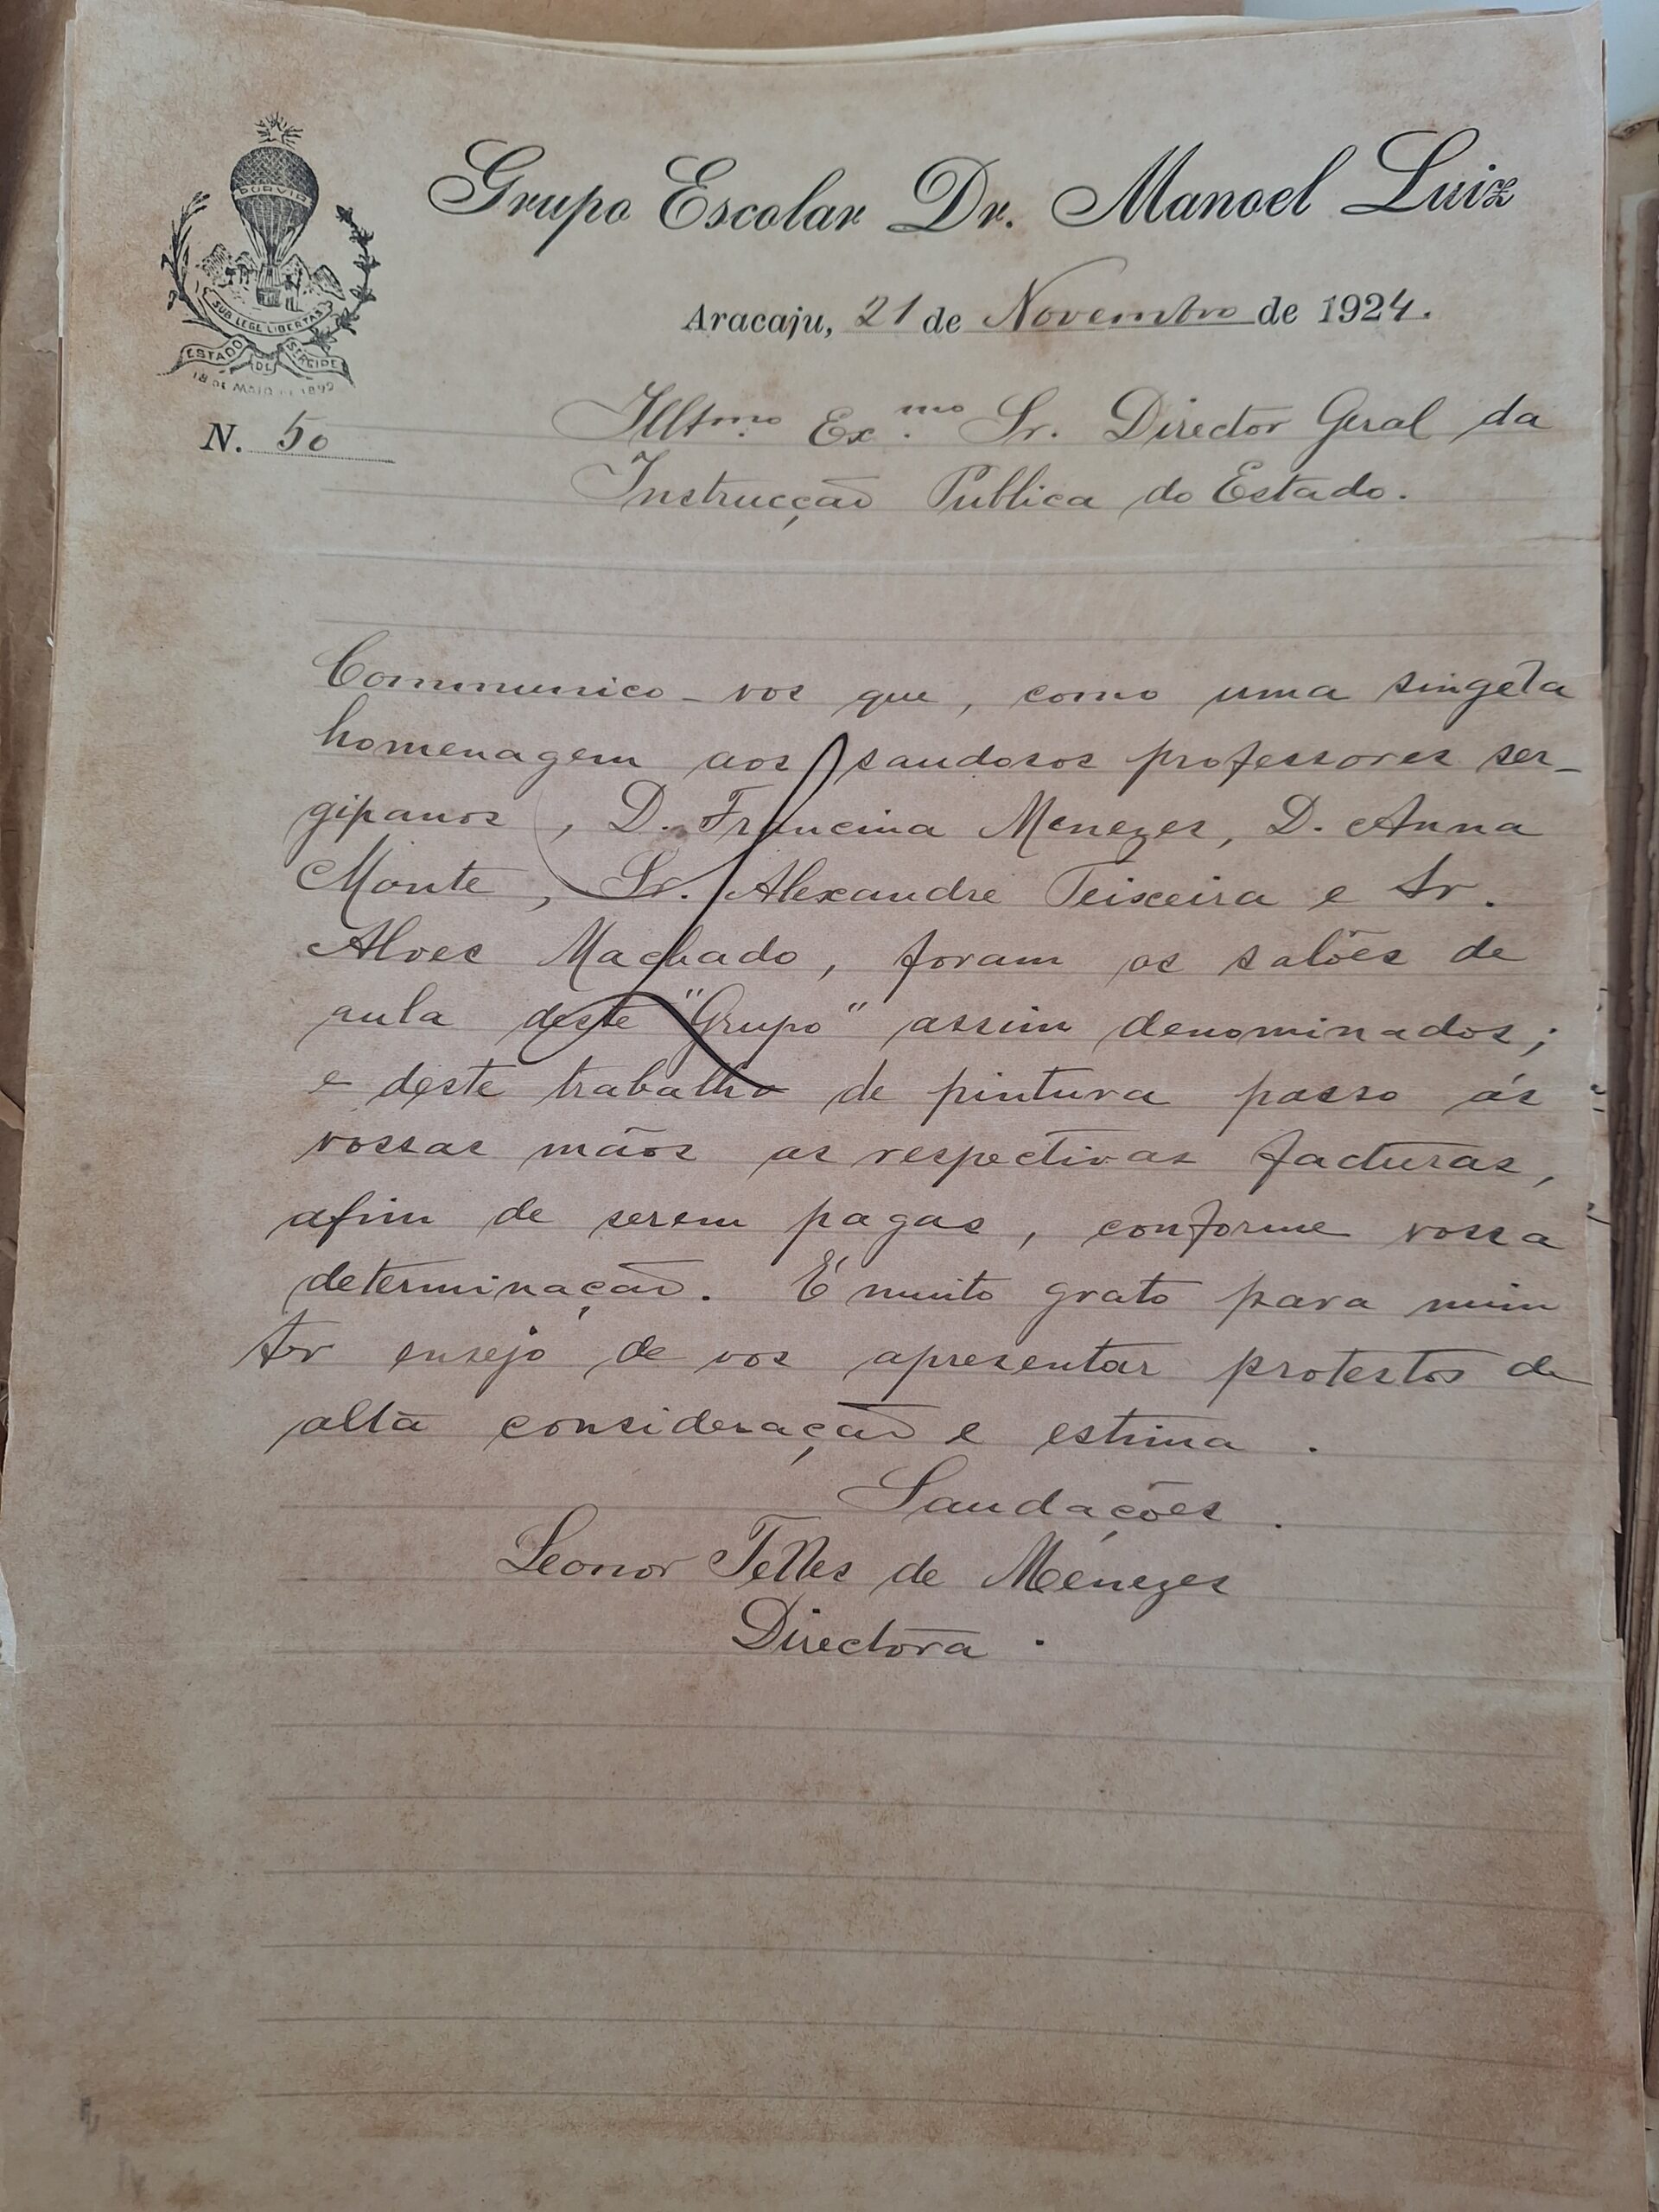 Grupo Escolar Dr. Manoel Luiz
PORVIR
SUB LEGE LIBERTAS
ESTADO DE SERGIPE
18 DE MAIO DE 1892
Aracaju, 21 de Novembro de 1924.
N. 50
Illtmo. Ex.mo Sr. Director Geral da
Instrucção Publica do Estado.
Communico-vos que, como uma singela
homenagem aos saudosos professores ser-
gipanos, D. Francina Menezes, D. Anna
Monte, Sr. Alexandre Teixeira e Sr.
Alves Machado, foram os salões de
aula deste "Grupo" assim denominados;
e deste trabalho de pintura passo ás
vossas mãos as respectivas facturas,
afim de serem pagas, conforme vossa
determinação. É muito grato para mim
ter ensejo de vos apresentar protestos de
alta consideração e estima.
Saudações.
Leonor Telles de Menezes
Directora.